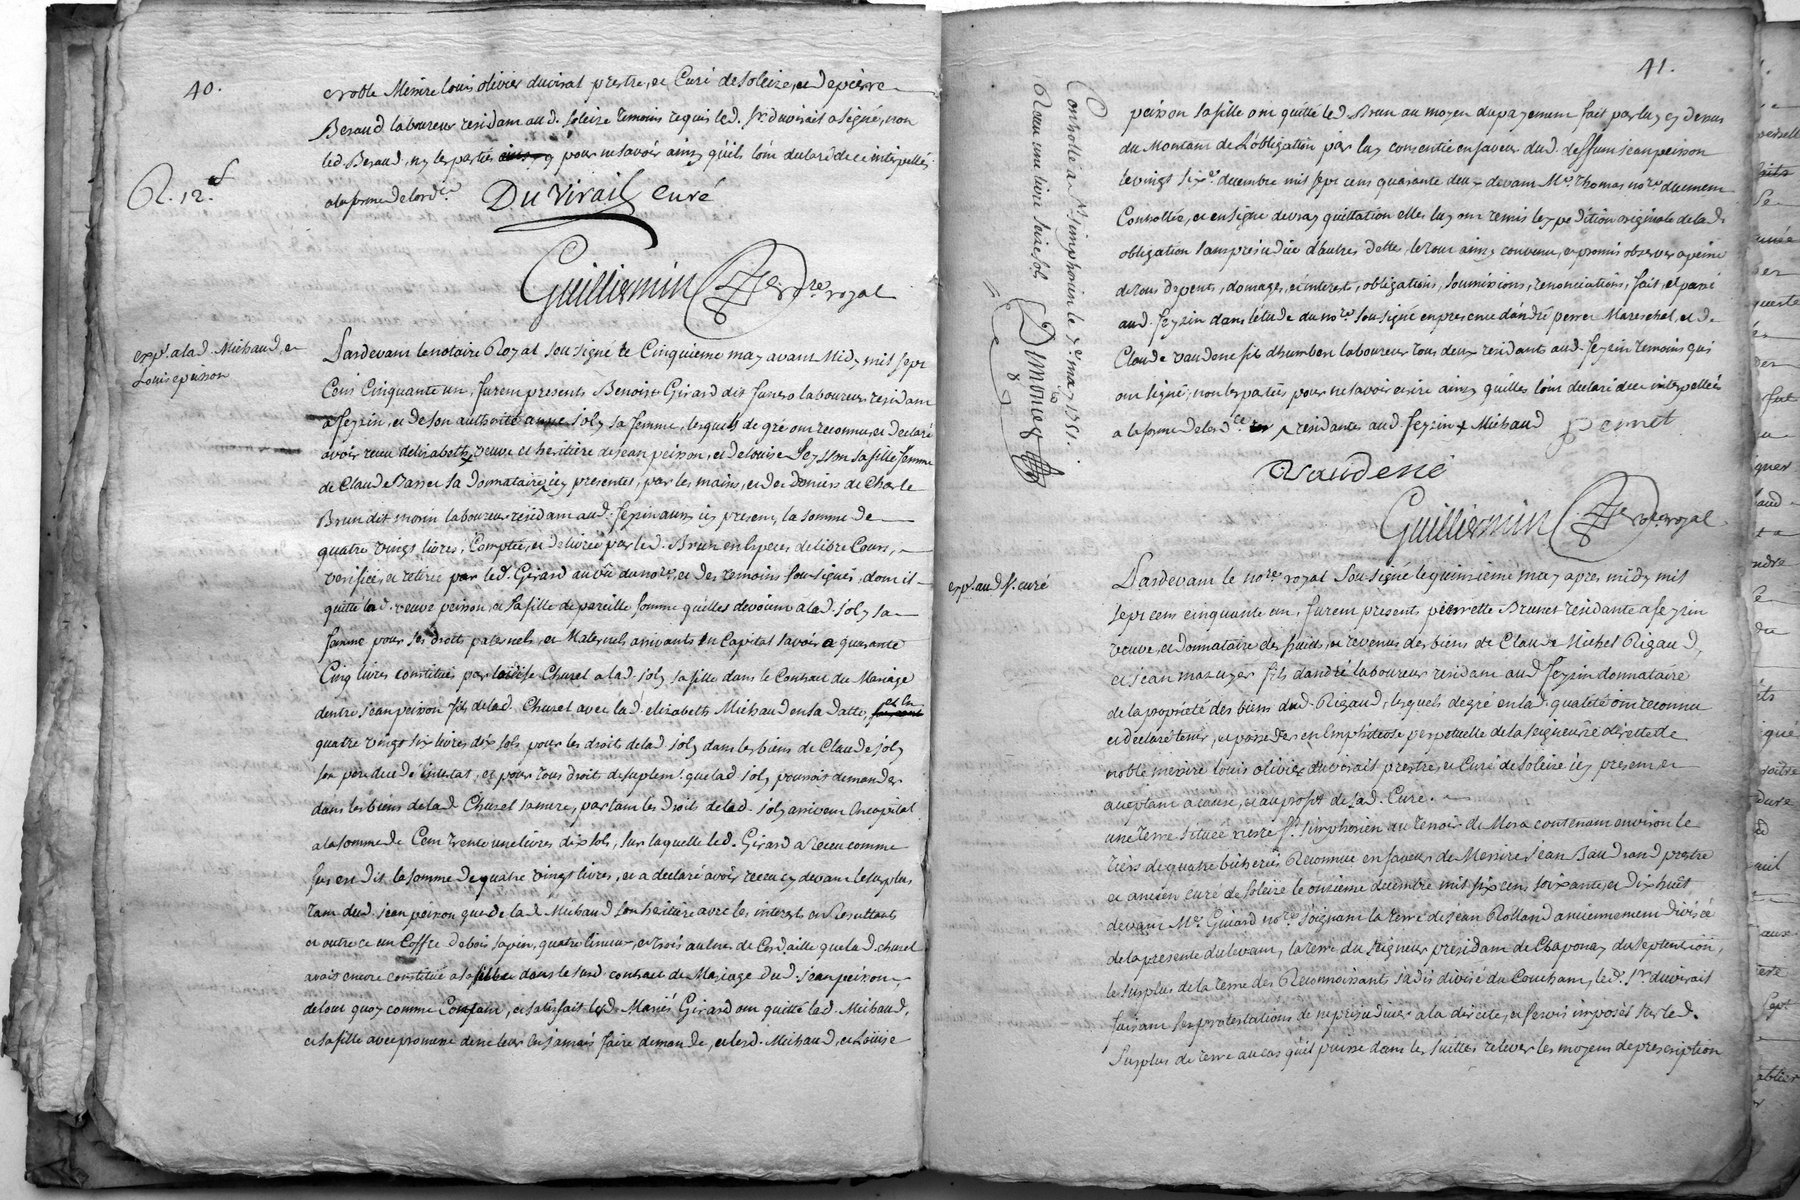 40.
noble Messire louis olivier duvirat prestre, et Curé de soleize, et de pierre
Beraud laboureur residant aud. soleize temoins requis led. sr. duvirait a signé, non
led Beraud, ny les parties pour ne savoir ainsy qu'ils l'ont declaré de ce interpellés
R. 12. s
a la forme de lordce
Du Virail Curé
Guilliermin nore royal
expé. a lad. Michaud, et
Louise peisson
Pardevant le notaire Royal sousigné le Cinquieme may avant Midy mil sept
Cens Cinquante un, furent presents Benoist Girard dit laboureur residant
a feyzin, et de son authorité anne joly sa femme, lesquels de gré ont reconnu, et declaré
avoir receu d'elizabeth veuve et heritiere de jean peisson, et de louise Peysson sa fille femme
de Claude Basset sa donnatairé icy presentes, par les mains, et de deniers de Charle
Brun dit morin laboureur residant aud. feyzin aussy icy present, la somme de
quatre vingt livres, Comptée, et delivrée par led. Brun en Especes de libre Cours,
verifiée, et retirée par led. Girard au vû du nore, et des temoins sousignés, dont il
quitte lad. veuve peisson, et sa fille de pareille somme qu'elles devoient a lad. joly sa
femme pour ses droit paternels, et Maternels arrivants en Capital savoir a quarante
Cinq livres constitués par loüise Churel a lad. joly sa fille dans le Contract du Mariage
d'entre jean peisson fils de lad. Churel avec lad. elizabeth Michaud en sa datte, et en
quatre vingt six livres dix sols pour les droit de lad joly dans les biens de Claude joly
son pere decedé intestat, et pour tous droit de suplemt. que lad joly pourroit demander
dans les biens de lad Churel sa mere, partant les droits de lad. joly arrivent en capital
a la somme de Cent trente une livres dix sols, sur laquelle led. Girard a receu comme
sus en dit la somme de quatre vingt livres, et a declaré avoir receu cy devant le surplus
tant dud. jean peisson que de lad Michaud son heritiere avec les interests en Resultants
et outre ce un Coffre de bois sapin, quatre linceux, et trois aulnes de Cordaille que lad. churel
avoit encore constitué a sa fille dans le susd. contract de Mariage dud. jean peisson,
de tout quoy comme Content, et satisfait lesd. Mariés Girard ont quitté lad. Michaud,
et sa fille avec promesse de ne leur en jamais faire demande, et lesd. Michaud, et Loüise
41.
peisson sa fille ont quitté led. Brun au moyen du payement fait par luy cy dessus
du Montant de L'obligation par luy consentie en faveur dud. deffunt jean peisson
le vingt sixe. decembre mil sept cens quarante deux devant Me. Thomas nore. duement
Controllée, et en signe de vray quittation elles luy ont remis l'expedition originale de lad.
obligation sans prejudice d'autres dettes, le tout ainsy convenu, et promis observer a peine
de tous depents, domages, et interests, obligations, soumissions, renonciations, fait, et passé
aud. feyzin dans l'etude du nore. sousigné en presence d'andré perret Mareschel, et de
Claude vaudené fils d'humbert laboureur tous deux residants aud. feyzin temoins qui
ont signé, non les parties pour ne savoir ecrire ainsy qu'elles l'ont declaré de ce interpellées
a la forme de lordce residantes aud feyzin Michaud perret
Vaudené
Guilliermin nore royal
Controllé a St. simphorien le 7e. may 1751.
Receu une livre seize sols
Dimonet
expé. aud Sr. curé
Pardevant le nore. royal sousigné le quinsieme may apres midy mil
sept cens cinquante un, furent present pierrette Brunet residante a feyzin
veuve, et donnataire des fruits, et revenus des biens de Claude Michel Rigaud,
et jean mazuyer fils d'andré laboureur residant aud feyzin donnataire
de la proprieté des biens dud. Rigaud, lesquels de gré en lad. qualité ont reconnu
et declaré tenir, et posseder en Emphiteose perpetuelle de la seigneurie directe de
noble messire louis olivier duvirait prestre, et Curé de soleize icy present et
acceptant a cause, et au profit de sad. Cure.
une terre située riere St. simphorien au teroir de Mora contenant environ le
tiers de quatre bicherés Reconnue en faveur de Messire jean Baudrand prestre
et ancien curé de soleize le onzieme decembre mil six cens soixante, et dix huit
devant Me. Guiard nore. joignant la terre de jean Rolland anciennement divisée
de la presente du levant, la terre du seigneur president de Chaponay du septention,
le surplus de la terre des Reconnoissants jadis divisé du Couchant, led. sr. duvirait
faisant ses protestations de ne prejudicier a la directe, et servis imposés sur led.
surplus de terre au cas qu'il puisse dans les suittes relever les moyens de prescription